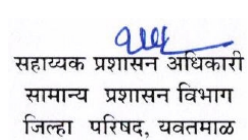 सहाय्यक प्रशासन अधिकारी
सामान्य प्रशासन विभाग
जिल्हा परिषद, यवतमाळ